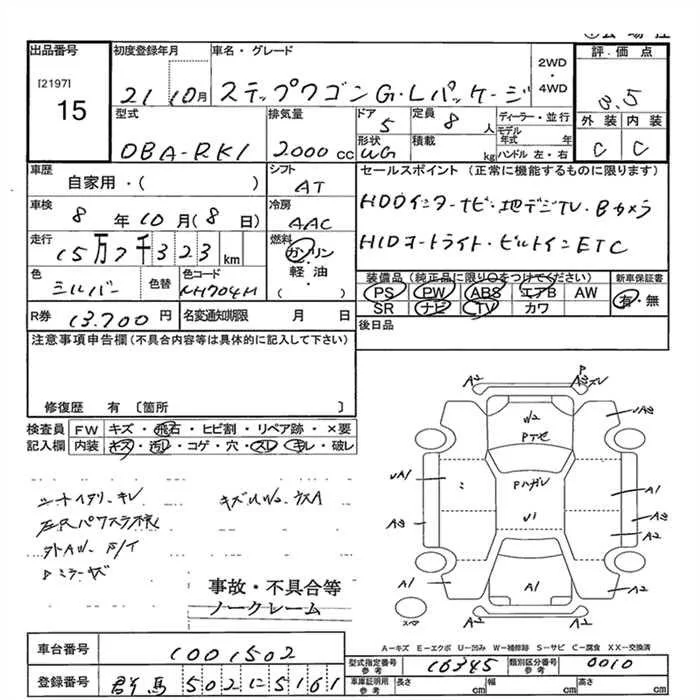 出品番号
[2197]
15
初度登録年月
21 10月
車名・グレード
ステップワゴン G・Lパッケージ
2WD
・
4WD
評価点
3.5
外装 内装
C C
型式
DBA-RK1
排気量
2000 cc
ドア
5
形状
WG
定員
8 人
積載
kg
ディーラー・並行
モデル
年式 年
ハンドル 左・右
車歴
自家用・( )
シフト
AT
車検
8 年 10 月 (8 日)
冷房
AAC
走行
15万7千323 km
燃料
ガソリン
軽油
( )
色
シルバー
色替
色コード
NH704M
R券
13.700 円
名変通知期限 月 日
セールスポイント (正常に機能するものに限ります)
HDDインターナビ・地デジTV・Bカメラ
HIDオートライト・ビルトインETC
装備品(純正品に限り○をつけてください)
PS PW ABS エアB AW
SR ナビ TV カワ
新車保証書
有・無
後日品
注意事項申告欄(不具合内容等は具体的に記入して下さい)
修復歴 有 〔箇所 〕
検査員
記入欄
FW キズ・飛石・ヒビ割・リペア跡・×要
内装 キズ・汚レ・コゲ・穴・スレ・キレ・破レ
事故・不具合等
ノークレーム
A2
P
A2
W2
A2
A1
A1
A2
A2
A1
A1
A1
A2
A2
スペア
A−キズ E−エクボ U−凹み W−補修跡 S−サビ C−腐食 XX−交換済
車台番号
1001502
登録番号
群馬 502 に 5161
型式指定番号
参考
16345
類別区分番号
参考
0010
車庫証明用
参考
長さ cm
幅 cm
高さ cm